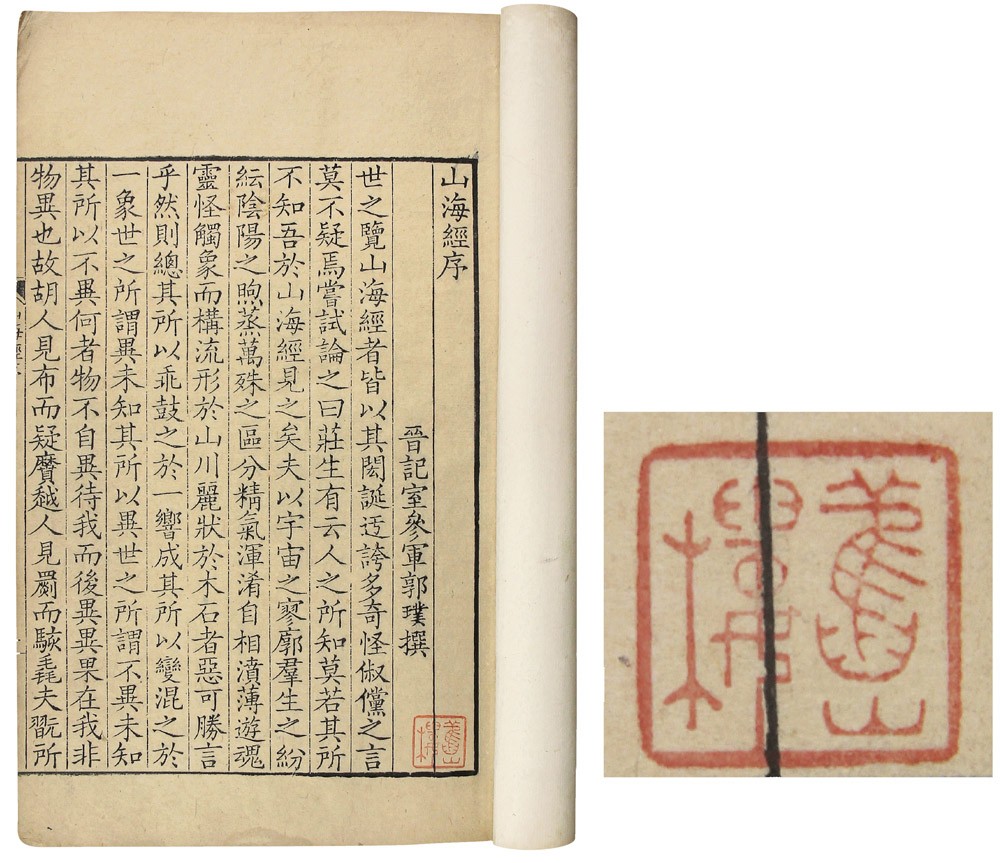 山海經序
晉記室參軍郭璞撰
世之覽山海經者皆以其閎誕迂誇多奇怪俶儻之言
莫不疑焉嘗試論之曰莊生有云人之所知莫若其所
不知吾於山海經見之矣夫以宇宙之寥廓羣生之紛
紜陰陽之煦蒸萬殊之區分精氣渾淆自相濆薄遊魂
靈怪觸象而構流形於山川麗狀於木石者惡可勝言
乎然則總其所以乖鼓之於一響成其所以變混之於
一象世之所謂異未知其所以異世之所謂不異未知
其所以不異何者物不自異待我而後異異果在我非
物異也故胡人見布而疑黂越人見罽而駭毳夫翫所